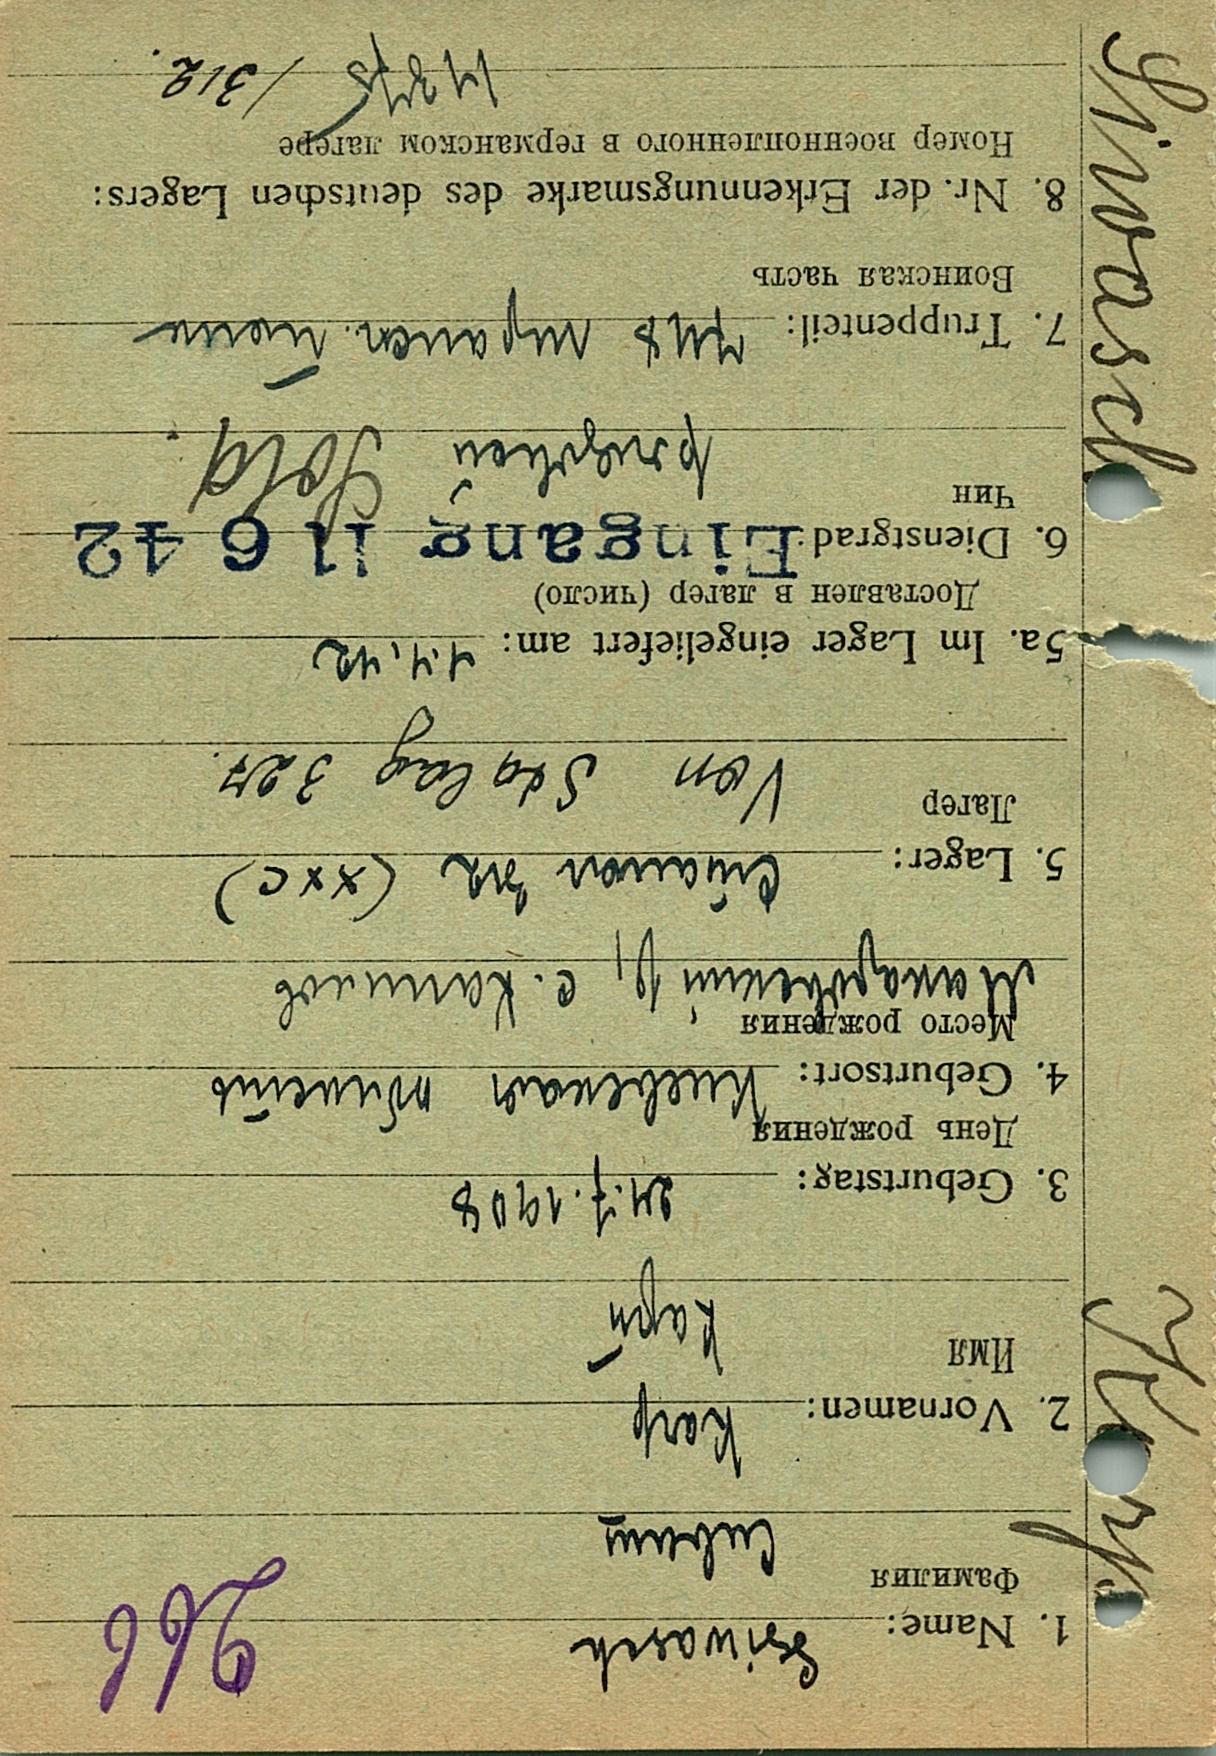 266
1. Name: Ssiwasch
Фамилия
Сиваш
2. Vornamen: Karp
Имя
Карп
3. Geburtstag: 24.7.1908
День рождения
4. Geburtsort: Киевская область
Место рождения
Макаровский р, с.
5. Lager: (XXc)
Лагер
Von Stalag 327.
5a. Im Lager eingeliefert am: 4.4.42
Доставлен в лагер (число)
6. Dienstgrad: Eingang 11 6 42
Чин
рядовой Sold.
7. Truppenteil: 748
Воинская часть
8. Nr. der Erkennungsmarke des deutschen Lagers:
Номер военнопленного в германском лагере
/ 312.
Karp Siwasch